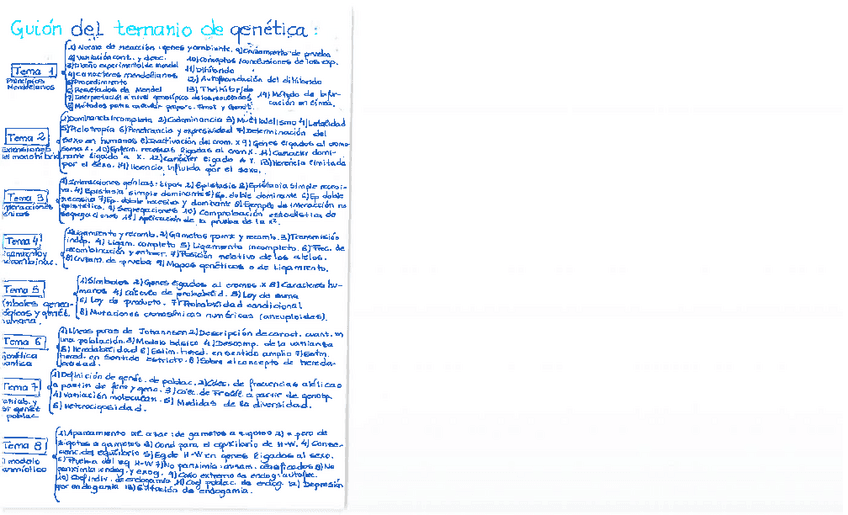 Guión del temario de genética:
Tema 1
Principios
Mendelianos
1) Norma de reacción: genes y ambiente. 9) Cruzamiento de prueba
2) Variación cont. y desc. 10) Conceptos/conclusiones de los exp.
3) Diseño experimental de Mendel 11) Dihíbrido
4) Caracteres mendelianos 12) Autofecundación del dihíbrido
5) Procedimiento
6) Resultados de Mendel 13) Trihíbrido 14) Método de bifur-
7) Interpretación a nivel genotípico de los resultados cación en línea.
8) Métodos para calcular proporc. fenot. y genot.
Tema 2
Extensiones
del monohíbrido
1) Dominancia incompleta 2) Codominancia 3) Multialelismo 4) Letalidad
5) Pleiotropía 6) Penetrancia y expresividad 7) Determinación del
sexo en humanos 8) Inactivación del crom. X 9) Genes ligados al cromo-
soma X. 10) Enferm. recesivas ligadas al crom X. 11) Carácter domi-
nante ligado a X. 12) Carácter ligado a Y. 13) Herencia limitada
por el sexo. 14) Herencia influida por el sexo.
Tema 3
1) Interacciones génicas: tipos 2) Epistasia 3) Epistasia simple recesi-
va. 4) Epistasia simple dominante 5) Ep. doble dominante 6) Ep doble
recesiva 7) Ep. doble recesiva y dominante 8) Ejemplo de interacción no
epistática. 9) Segregaciones 10) Comprobación estadística de
segregaciones 11) Aplicación de la prueba de la x².
Tema 4
1) Ligamiento y recomb. 2) Gametos parent. y recomb. 3) Transmisión
indep. 4) Ligam. completo 5) Ligamiento incompleto. 6) Frec. de
recombinación y entrecr. 7) Posición relativa de los alelos.
8) Cruzam. de prueba 9) Mapas genéticos o de ligamiento.
Tema 5
1) Símbolos 2) Genes ligados al cromos. X 3) Caracteres hu-
manos 4) Cálculo de probabilid. 5) Ley de suma
6) Ley de producto. 7) Probabilidad condicional
8) Mutaciones cromosómicas numéricas (aneuploides).
Tema 6
1) Líneas puras de Johannsen 2) Descripción de caract. cuant. en
una población. 3) Modelo básico 4) Descomp. de la varianza
5) Heredabilidad 6) Estim. hered. en sentido amplio 7) Estim.
hered. en sentido estricto. 8) Sobre el concepto de hereda-
bilidad.
Tema 7
1) Definición de genét. de poblac. 2) Cálc. de frecuencias alélicas
a partir de feno y geno. 3) Cálc. de a partir de genotip.
4) Variación molecular. 5) Medidas de la diversidad.
6) Heterocigosidad.
Tema 8
modelo
1) Apareamiento al azar: de gametos a zigotos 2) de
zigotos a gametos 3) Cond para el equilibrio de H-W. 4) Conse-
cuenc. del equilibrio 5) Eq de H-W en genes ligados al sexo.
6) Prueba del eq H-W 7) No panmixia: clasificados 8) No
panmixia: endog. y exog. 9) Caso extremo de endog: autofec.
10) Coef indiv. de endogamia 11) Coef poblac. de endog. 12) Depresión
por endogamia 13) Evitación de endogamia.